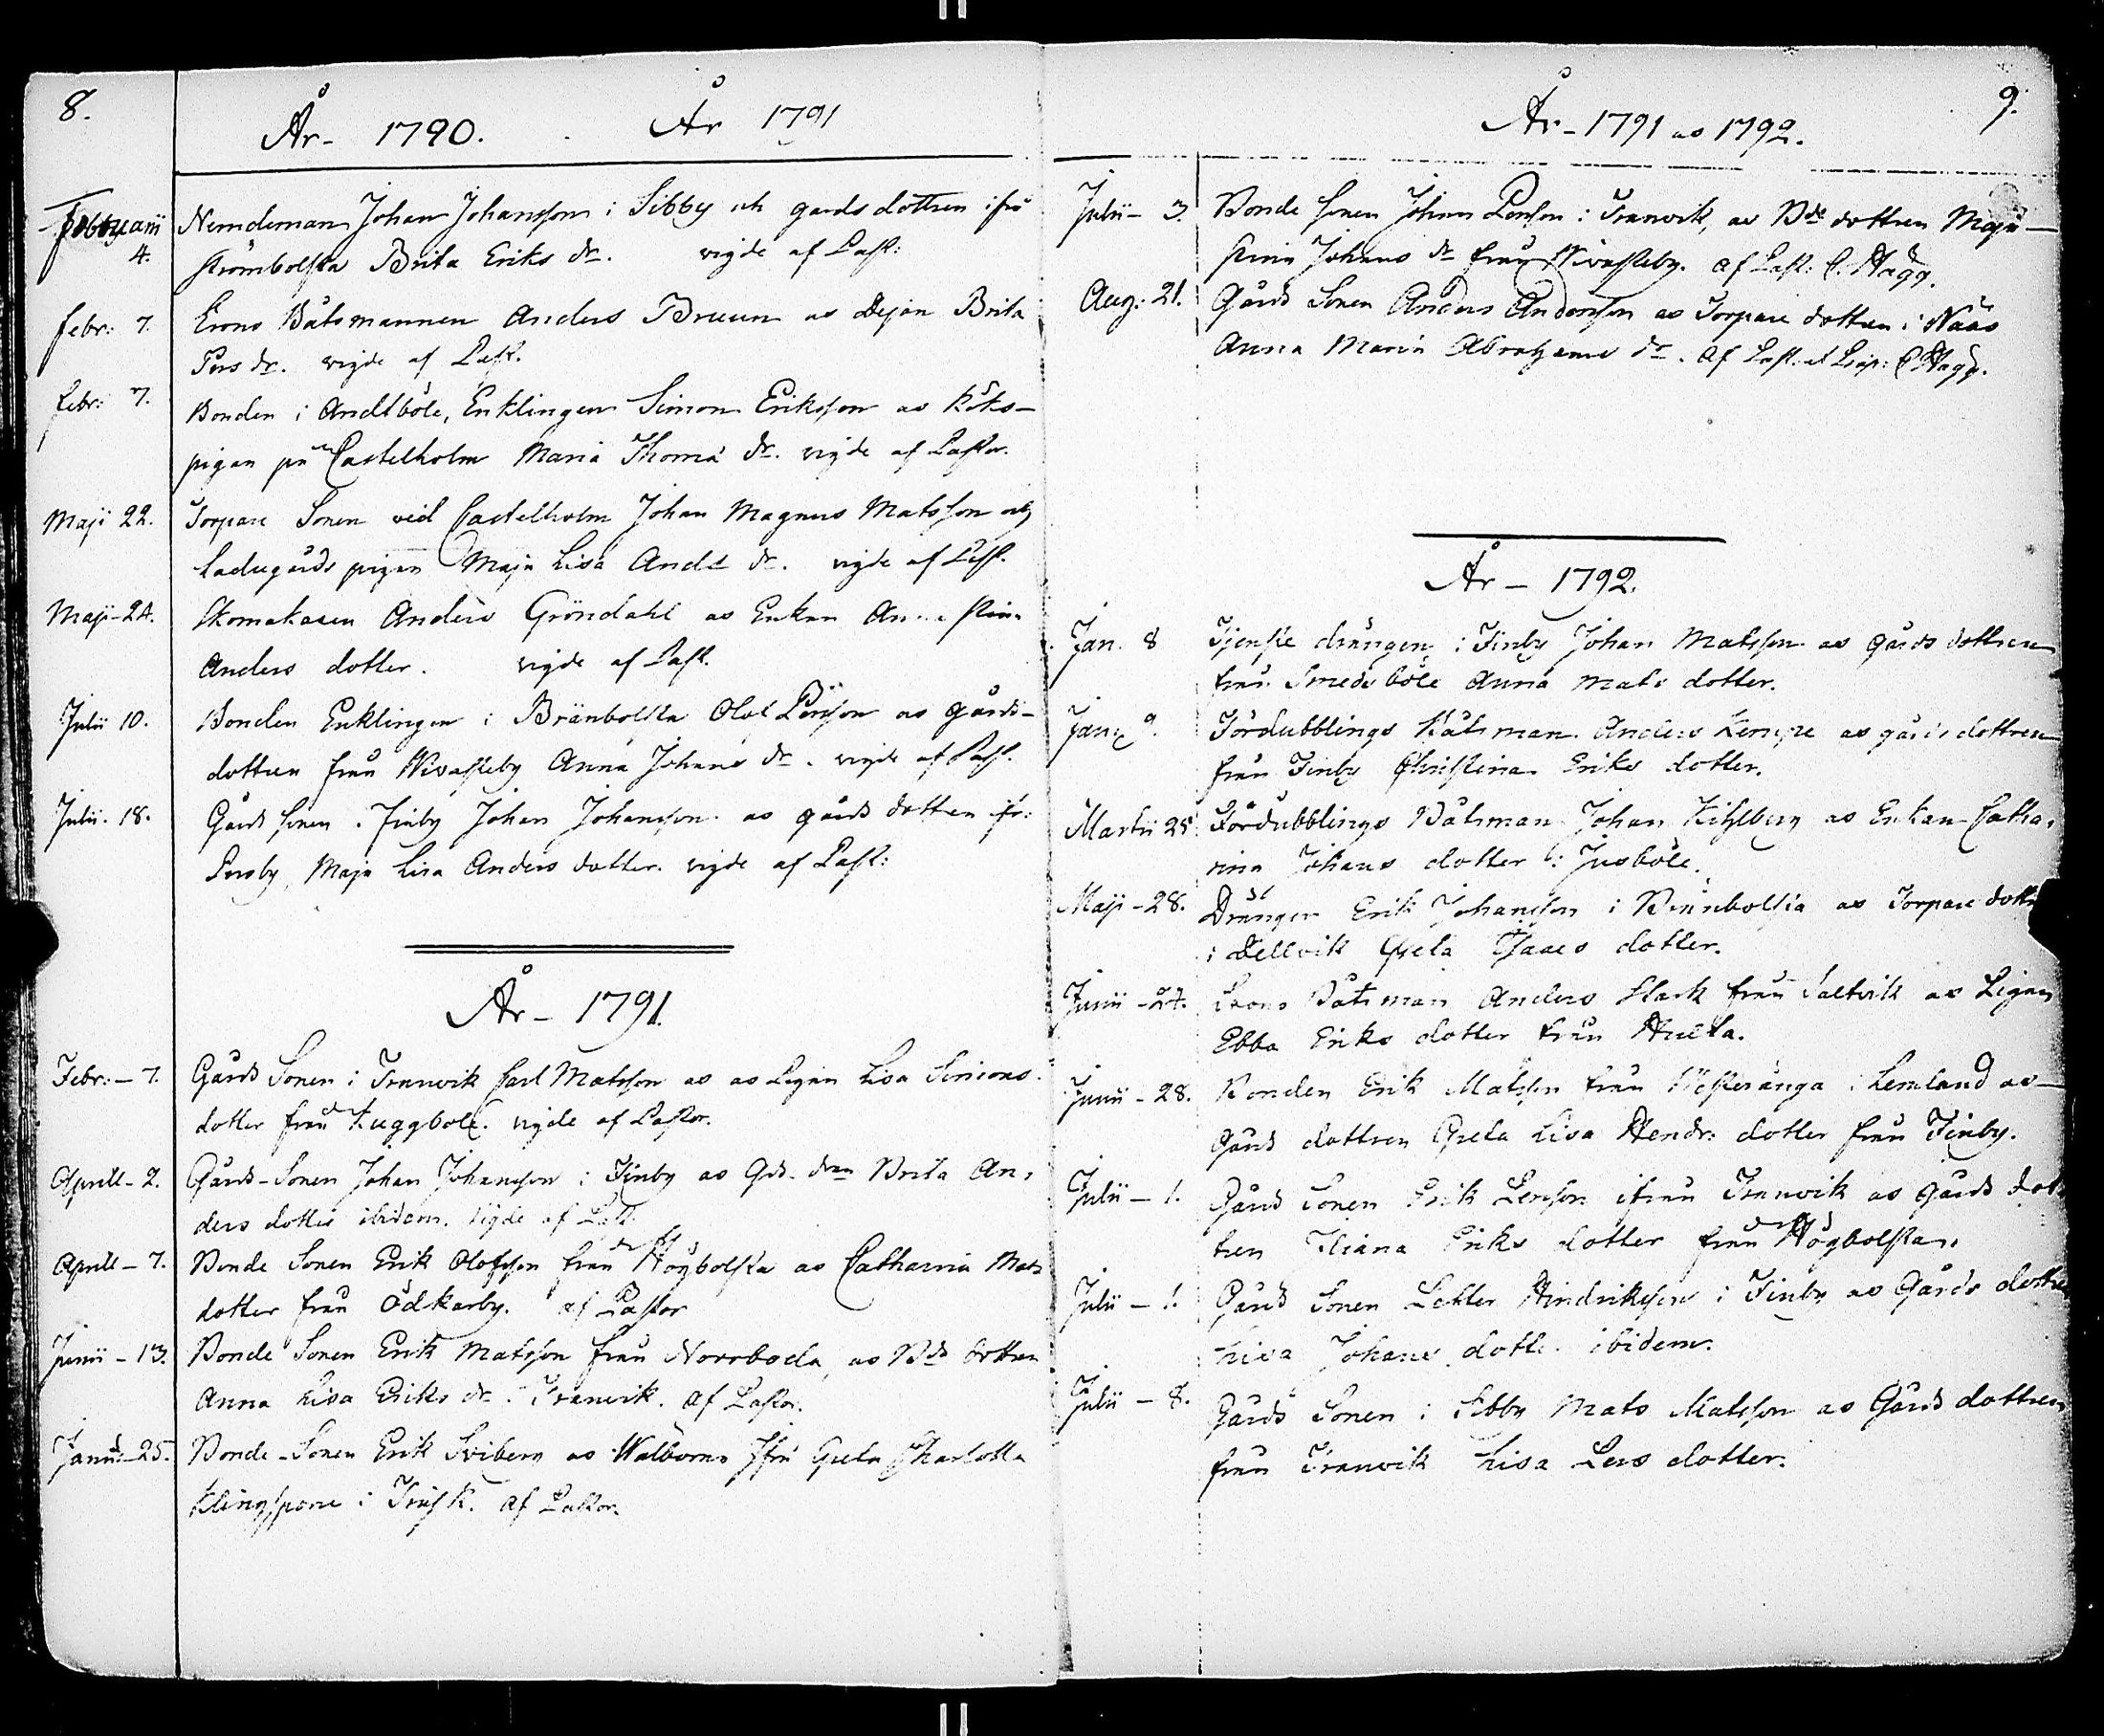 8.
År - 1790. År 1791
Februarii
4.
Nemdeman Johan Johansson i Sibby och gårds dottren ifrå
Strömbolsta Brita Eriks dr. vigde af Past:
Febr: 7. Crono Båtsmannen Anders Bruun as Dejan Brita
Pers dr. vigde af Past.
Febr: 7. Bonden i Andtböle, Enklingen Simon Eriksson as Köks-
pigan på Castelholm Maria Thoma dr. vigde af Pastor.
Maji 22. Torpare Sonen vid Castelholm Johan Magnus Matsson och
Ladugårds pigan Maja Lisa Andr dr. vigde af Past.
Maji - 24. Skomakaren Anders Gröndahl as Enkan Anna Stina
Anders dotter. vigde af Past.
Julii 10. Bonden Enklingen i Bränbolsta Olof Persson as gårds-
dottren från Wivasteby Anna Johans dr. vigde af Past.
Julii. 18. Gårds sonen i Finby Johan Johansson as gårds dottren ifr:
Persby, Maja Lisa Anders dotter. vigde af Past:
År - 1791.
Febr: - 7. Gårds Sonen i Tranvik Carl Matsson as as Pigan Lisa Simons
dotter från Kuggbole. vigde af Pastor.
Aprill - 2. Gårds - Sonen Johan Johansson i Finby as Gds. dren Brita An,
ders dotter ibidem. vigde af Past.
Aprill - 7. Bonde Sonen Erik Olofsson från Högbolsta as Catharina Mats
dotter från Ödkarby. af Pastor
Junii - 13. Bonde Sonen Erik Matsson från Norrboda, as Bds dottren
Anna Lisa Eriks dr i Tranvik. af Pastor.
25. Bonde - Sonen Erik Sviberg as Wälborna Jfru Greta Charlotta
Klingspore i Träsk. af Pastor.
9.
År - 1791 as 1792.
Julii - 3. Bonde sonen Johan Persson i Tranvik, as Bde dottren Maja
Stina Johans dr från Wivasteby. af Past: C. Hägg.
Aug: 21. Gårds Sonen Anders Andersson as Torpare dottren i Nääs
Anna Maria Abrahams dr. af Past. C Hägg.
År - 1792.
Jan. 8 Tjenste drängen i Finby Johan Matsson as gårds dottren
från Smedsböle Anna Mats dotter.
Jan: 9. Fördubblings Båtsman Anders Kempe as gårds dottren
från Finby Christina Eriks dotter.
Martii 25 Fördubblings Båtsman Johan Kihlberg as Enkan Catha,
rina Johans dotter i Jusböle.
Maji - 28. Drängen Erik Johansson i Brännbolsta as Torpare dottr
i Dellvik Greta Isaacs dotter.
Junii - 24. Crono Båtsman Anders Stark från Saltvik as Pigan
Ebba Eriks dotter från Hulta.
Junii - 28. Bonden Erik Matsson från Westeränga i Lemland as
Gårds dottren Greta Lisa Hendr: dotter från Finby.
Julii - 1. Gårds Sonen Erik Persson ifrån Tranvik as Gårds dot
tren Eriks dotter från Högbolsta.
Julii - 1. Gårds Sonen Petter Hindriksson i Finby as Gårds dottre
Lisa Johans dotter ibidem.
Julii - 8. Gårds Sonen i Sibby Mats Matsson as Gårds dottren
från Tranvik Lisa Pers dotter.